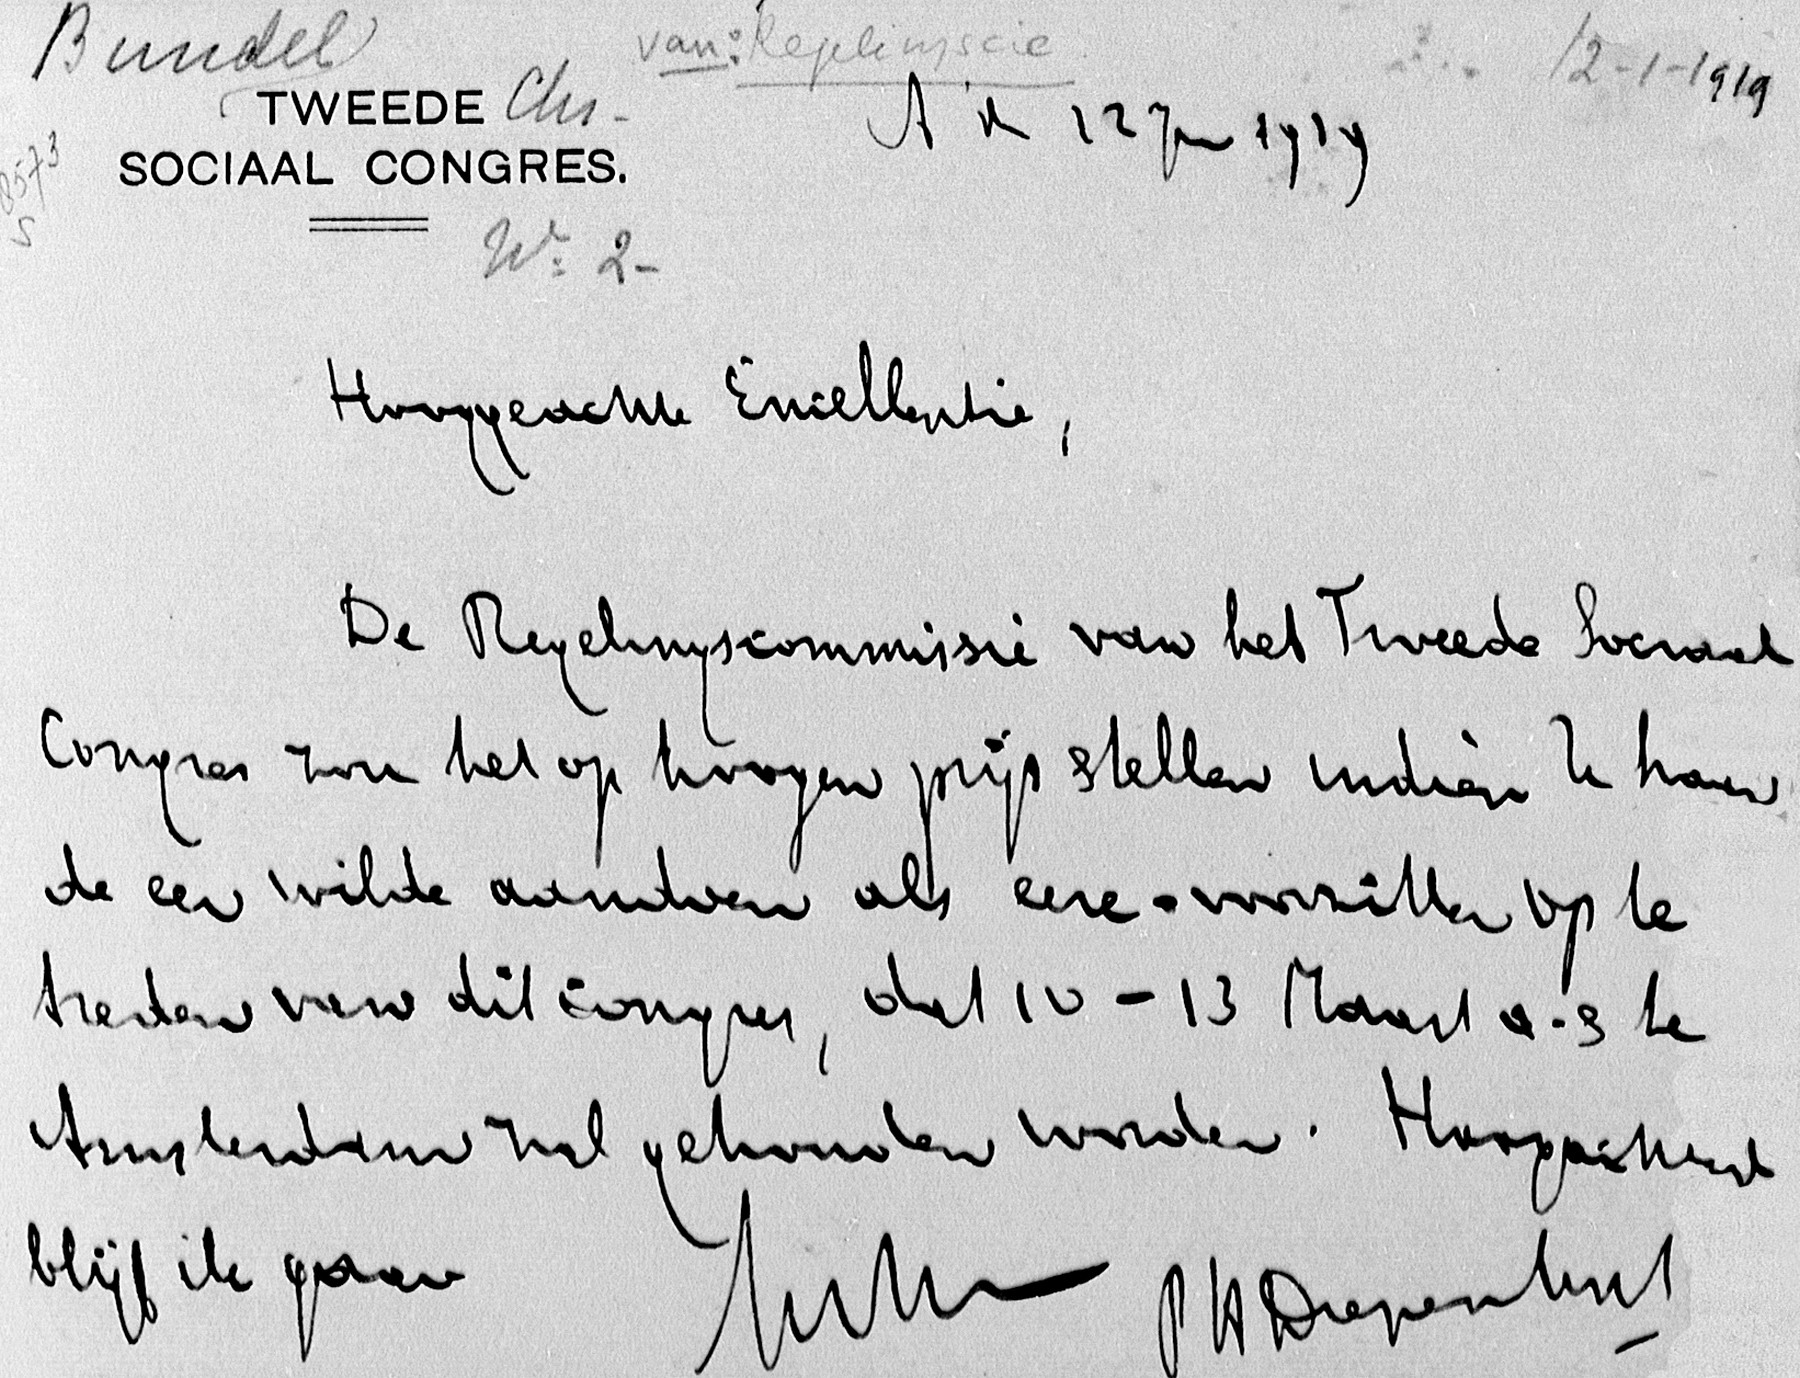 Bundel van: Regelingscie 12-1-1919
TWEEDE Chr.-
SOCIAAL CONGRES.
8573
5
A'd 12 Jan 1919
Nr: 2-
Hooggeachte Excellentie,
De Regelingscommissie van het Tweede Sociaal
Congres zou het op hoogen prijs stellen indien U haar
de eer wilde aandoen als eere-voorzitter op te
treden van dit congres, dat 10-13 Maart a.s te
Amsterdam zal gehouden worden. Hoogachtend
blijf ik gaarne
P A Diepenhorst